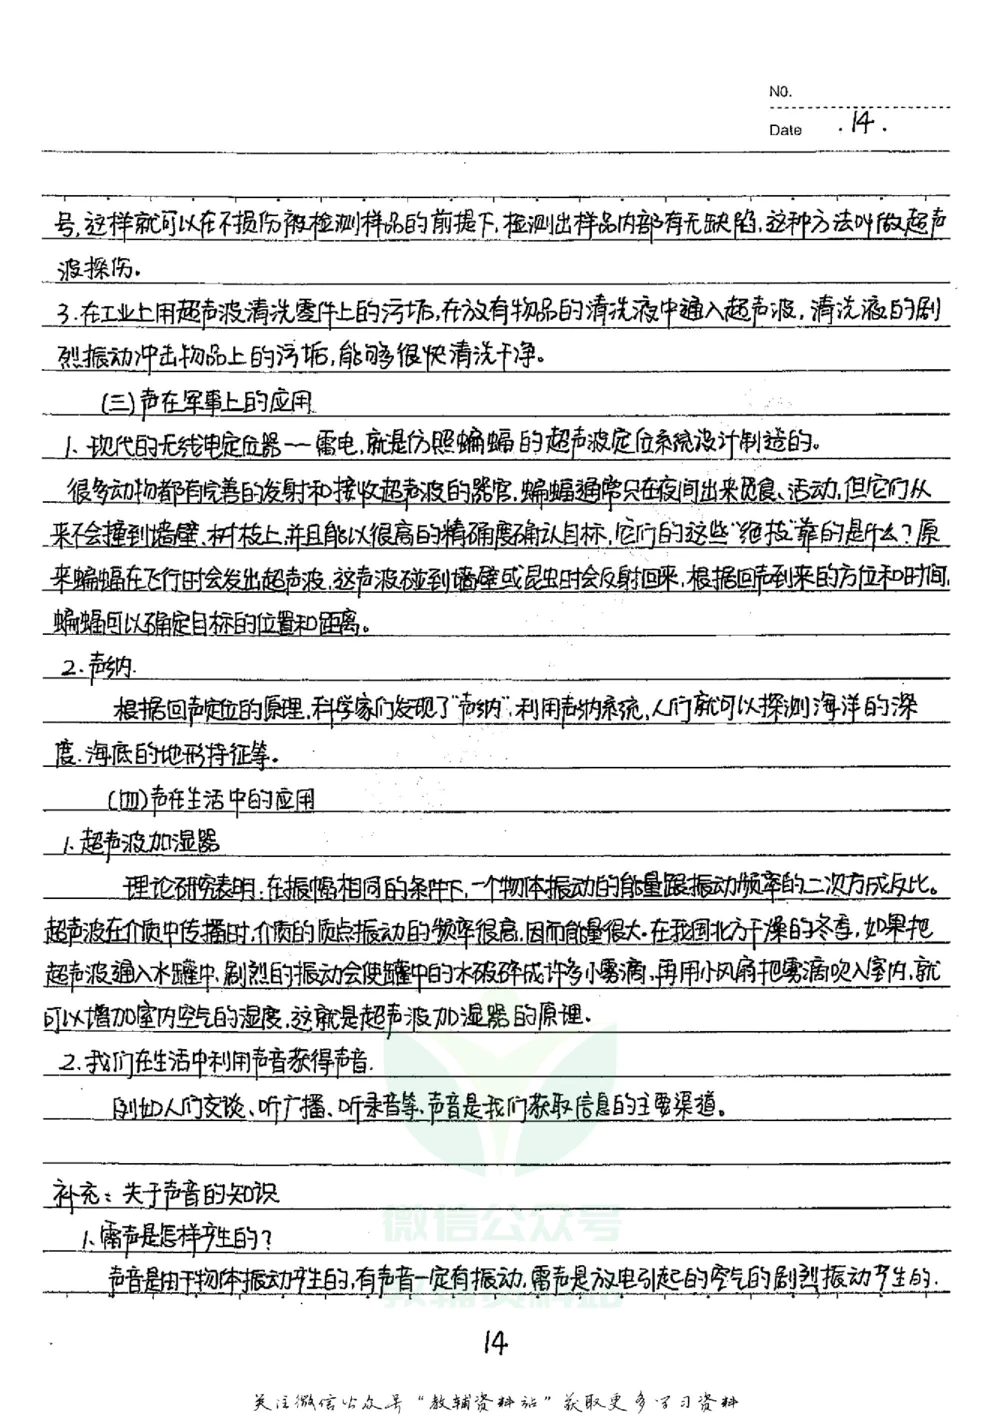 NO.
Date .14.
号,这样就可以在不损伤被检测样品的前提下,检测出样品内部有无缺陷,这种方法叫做超声
波探伤。
3.在工业上用超声波清洗零件上的污垢,在放有物品的清洗液中通入超声波,清洗液的剧
烈振动冲击物品上的污垢,能够很快清洗干净。
(三)声在军事上的应用
1.现代的无线电定位器——雷电,就是仿照蝙蝠的超声波定位系统设计制造的。
很多动物都有完善的发射和接收超声波的器官,蝙蝠通常只在夜间出来觅食、活动,但它们从
来不会撞到墙壁、树枝上,并且能以很高的精确度确认目标,它们的这些“绝技”靠的是什么?原
来蝙蝠在飞行时会发出超声波,这声波碰到墙壁或昆虫时会反射回来,根据回声到来的方位和时间,
蝙蝠可以确定目标的位置和距离。
2.声纳.
根据回声定位的原理,科学家们发现了“声纳”,利用声纳系统,人们就可以探测海洋的深
度.海底的地形特征等。
(四)声在生活中的应用
1.超声波加湿器
理论研究表明:在振幅相同的条件下,一个物体振动的能量跟振动频率的二次方成反比。
超声波在介质中传播时,介质的质点振动的频率很高,因而能量很大.在我国北方干燥的冬季,如果把
超声波通入水罐中,剧烈的振动会使罐中的水破碎成许多小雾滴,再用小风扇把雾滴吹入室内,就
可以增加室内空气的湿度,这就是超声波加湿器的原理.
2.我们在生活中利用声音获得声音.
例如人们交谈、听广播、听录音等,声音是我们获取信息的主要渠道。
补充:关于声音的知识
1.雷声是怎样产生的?
声音是由于物体振动产生的,有声音一定有振动,雷声是放电引起的空气的剧烈振动产生的.
微信公众号
教辅资料站
14
关注微信公众号“教辅资料站”获取更多学习资料